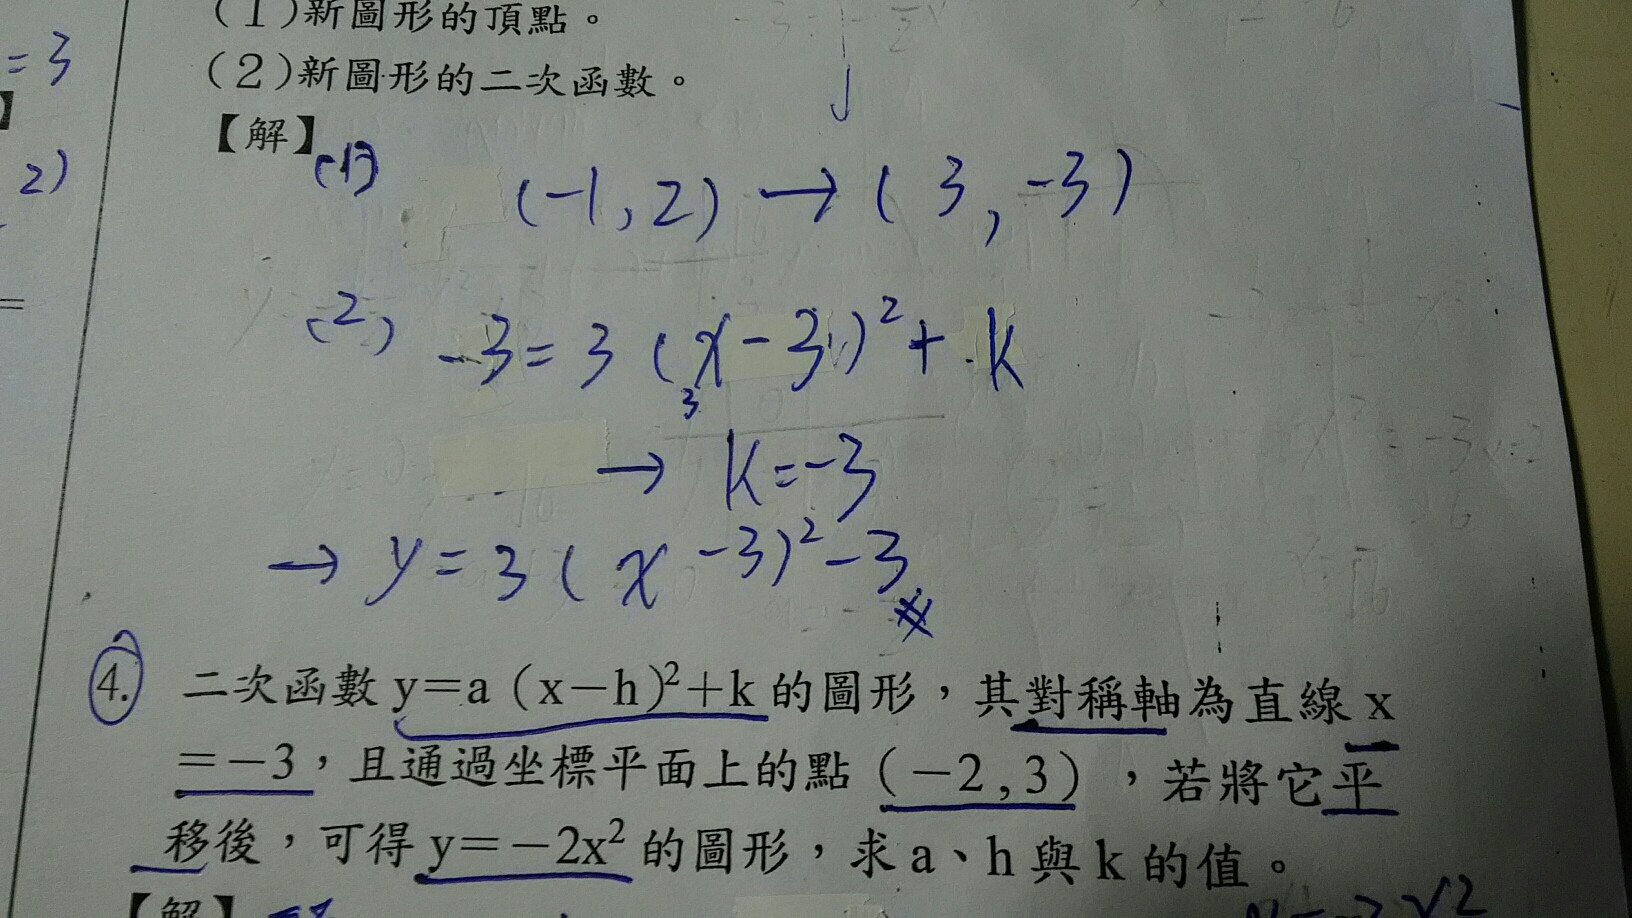 (1)新圖形的頂點。
=3
(2)新圖形的二次函數。
】
【解】
(1)
2)
(-1,2)→(3,-3)
=
(2) -3=3(x-3)²+k
3
→ k=-3
→ y=3(x-3)²-3
4. 二次函數 y=a（x－h）²＋k 的圖形，其對稱軸為直線 x
＝－3，且通過坐標平面上的點（－2,3），若將它平
移後，可得 y＝－2x² 的圖形，求 a、h 與 k 的值。
【解】